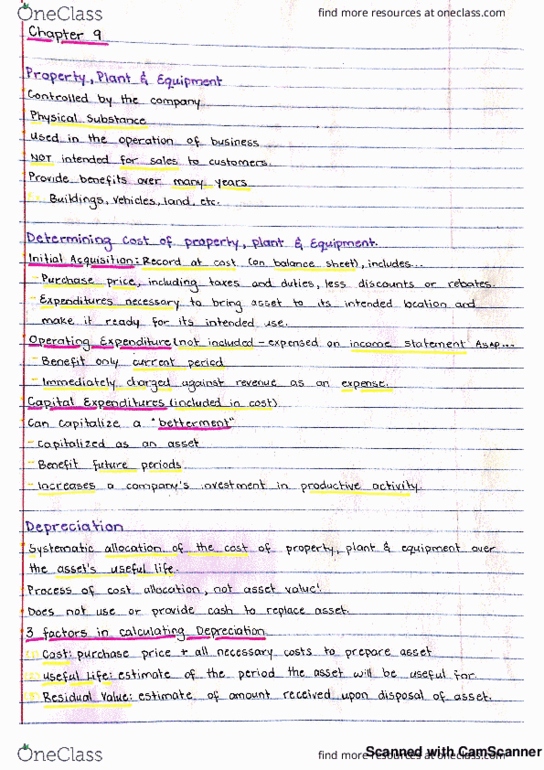 OneClass
find more resources at oneclass.com
Chapter 9
Property, Plant & Equipment
Controlled by the company
Physical Substance
Used in the operation of business
NOT intended for sales to customers.
Provide benefits over many years
Buildings, vehicles, land, etc.
Determining cost of property, plant & Equipment.
Initial Acquisition: Record at cost (on balance sheet), includes...
- Purchase price, including taxes and duties, less discounts or rebates.
- Expenditures necessary to bring asset to its intended location and
make it ready for its intended use.
Operating Expenditure (not included - expensed on income statement ASAP...
- Benefit only current period
- Immediately charged against revenue as an expense.
Capital Expenditures (included in cost)
Can capitalize a "betterment"
- Capitalized as an asset
- Benefit future periods
- Increases a company's investment in productive activity.
Depreciation
Systematic allocation of the cost of property, plant & equipment over
the asset's useful life.
Process of cost allocation, not asset value!
Does not use or provide cash to replace asset.
3 factors in calculating Depreciation
(1) Cost: purchase price + all necessary costs to prepare asset
(2) useful life: estimate of the period the asset will be useful for
(3) Residual Value: estimate of amount received upon disposal of asset.
OneClass
find more resources at oneclass.com
Scanned with CamScanner